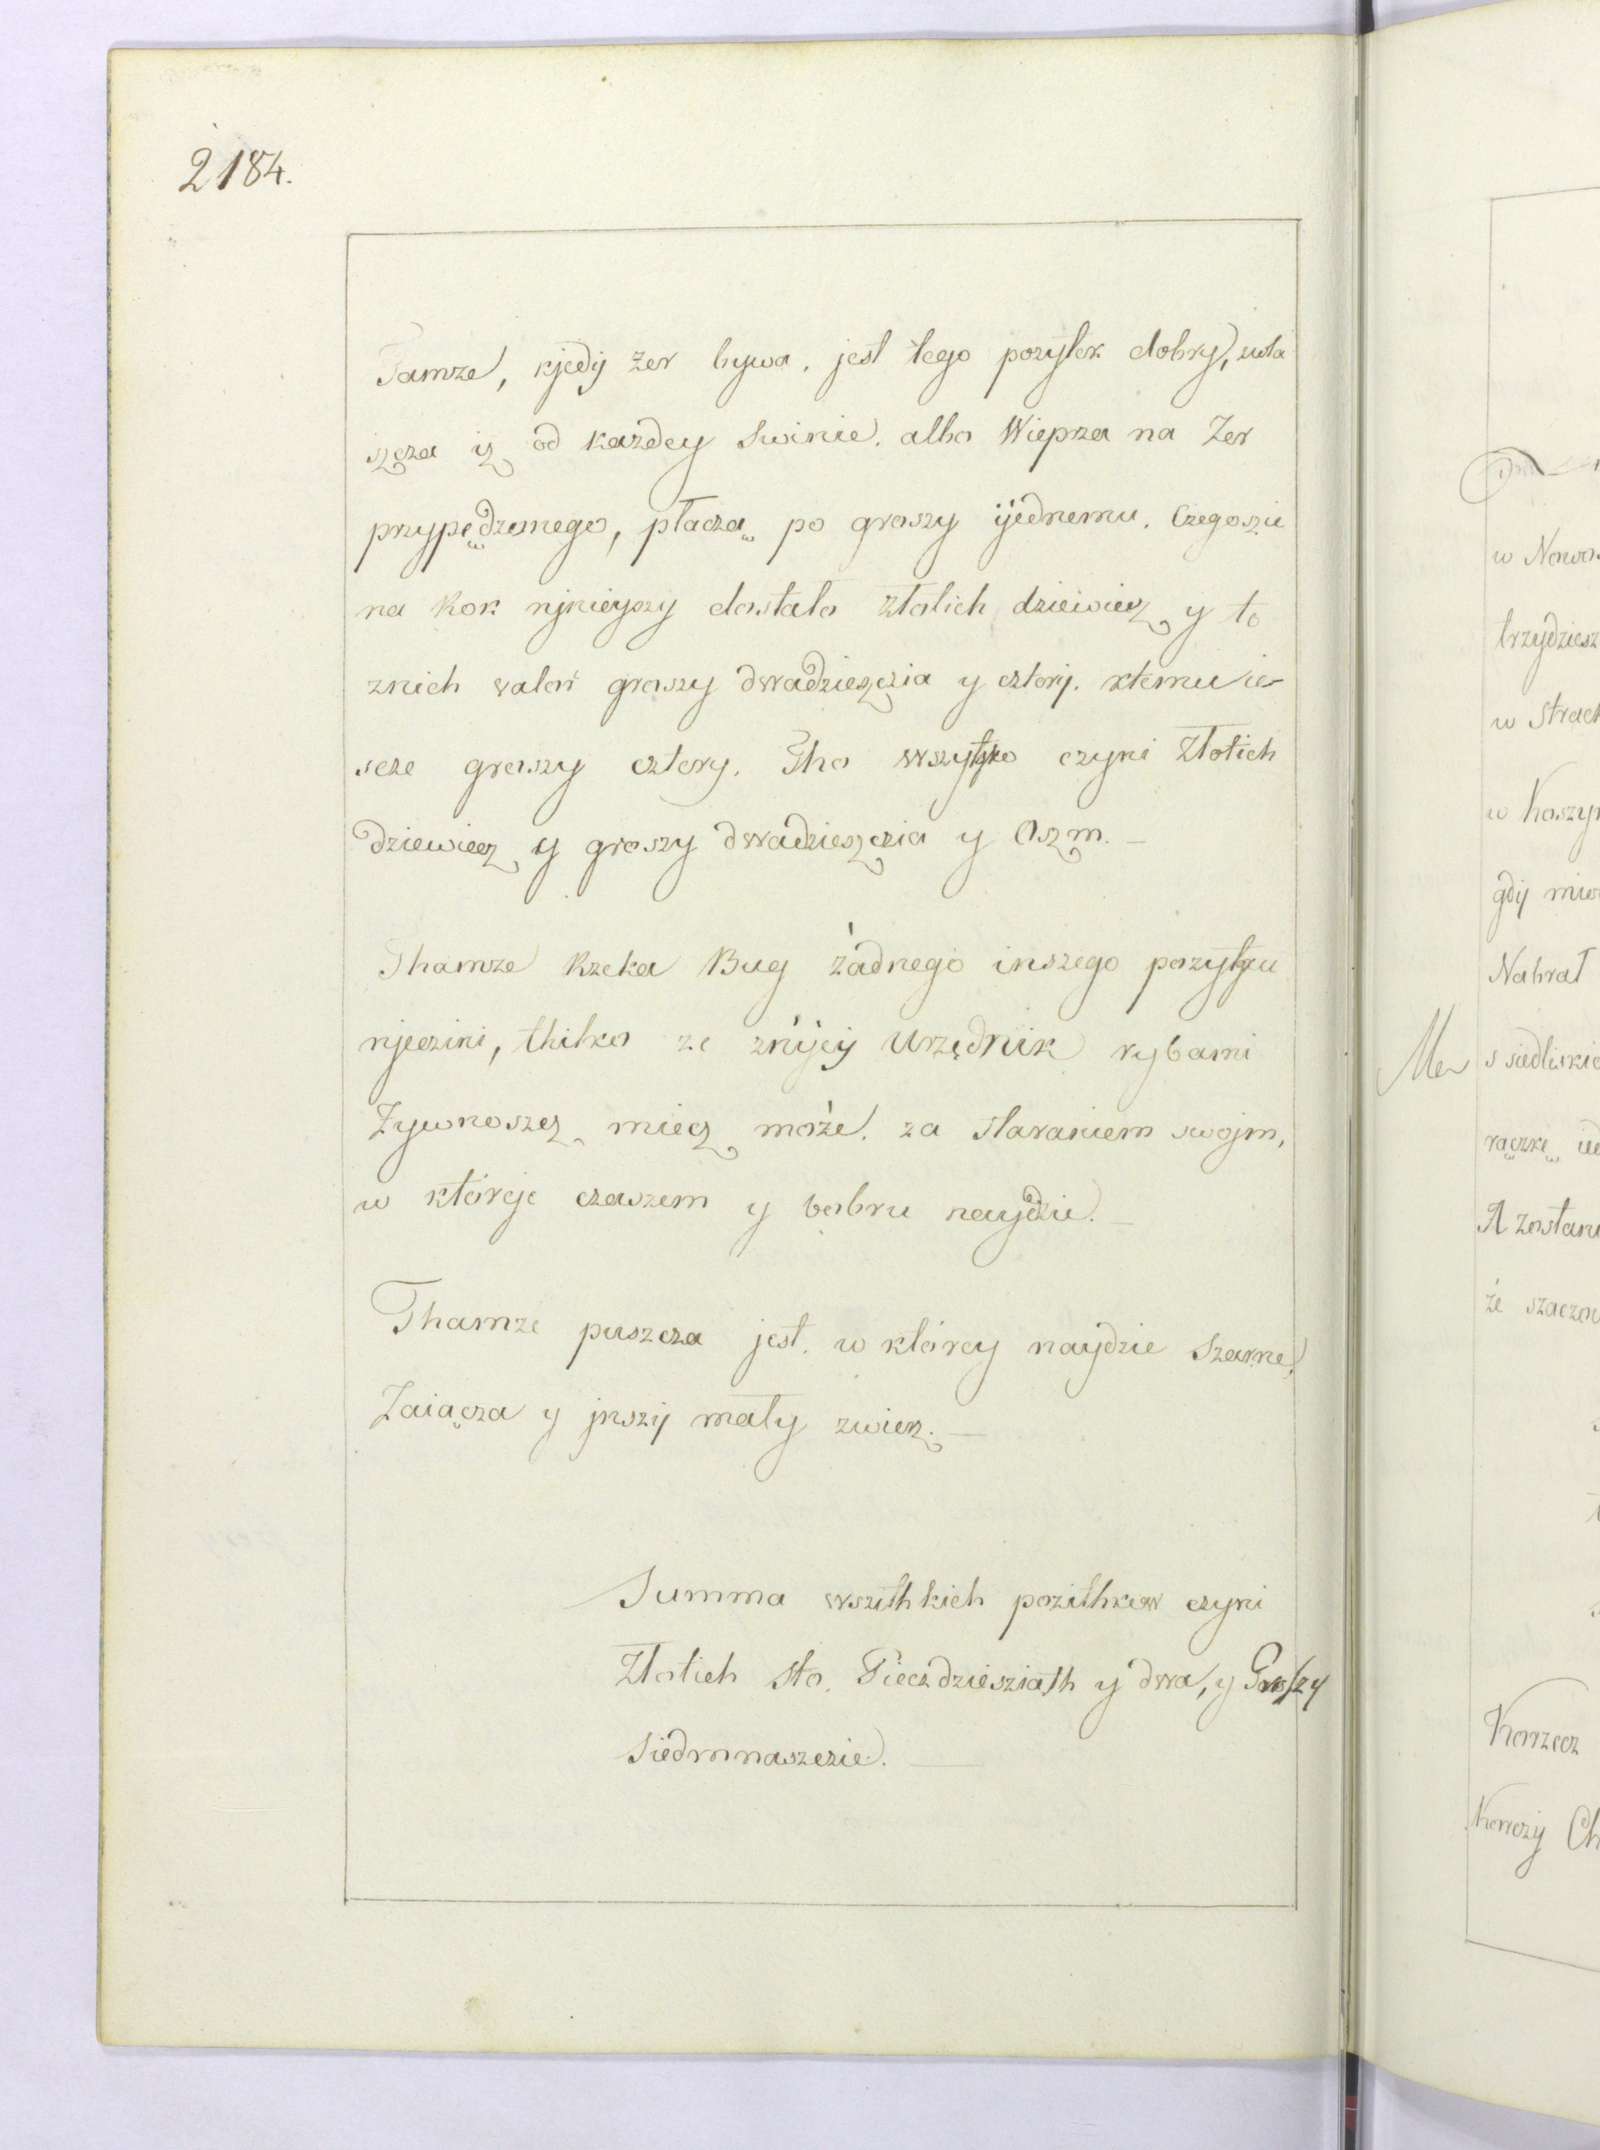 2184.
Tamze, kjedij żer bywa, jest tego pozytek dobry, zwła
szcza iz od kazdey swinie, albo Wiepza na Zer
przypędzonego, płacza po groszy ijednemu. Czegoszie
na Rok njnieyszy dostało złotich dziewiecz y to
znich walor groszy dwadzieszczia y cztory. ktemu ie
scze groszy cztory. Tho wszytko czyni Złotich
dziewiecz y groszy dwadzieszczia y Oszm. —
Thamze Rzeka Bug żadnego inszego pozytku
njeczini, thilko ze znijej Urzędnik rybami
Zywnoszcz miecz może, za staraniem swojm,
w któreje czaszem y bobru naydzie. —
Thamze puszcza jest, w którey naydzie Szarne,
Zaiącza y jnszij mały zwierz. —
Summa wszithkich pozithkow czyni
Złotich sto, Pieczdziesziath y dwa, y Groszy
siedmnaszczie. —
w
trzydziesz
w strach
w Koszyn
gdij
Nabrał
Me s siedliskie
rączkę
A zostaru
że
Korzecz
Korczy Ch